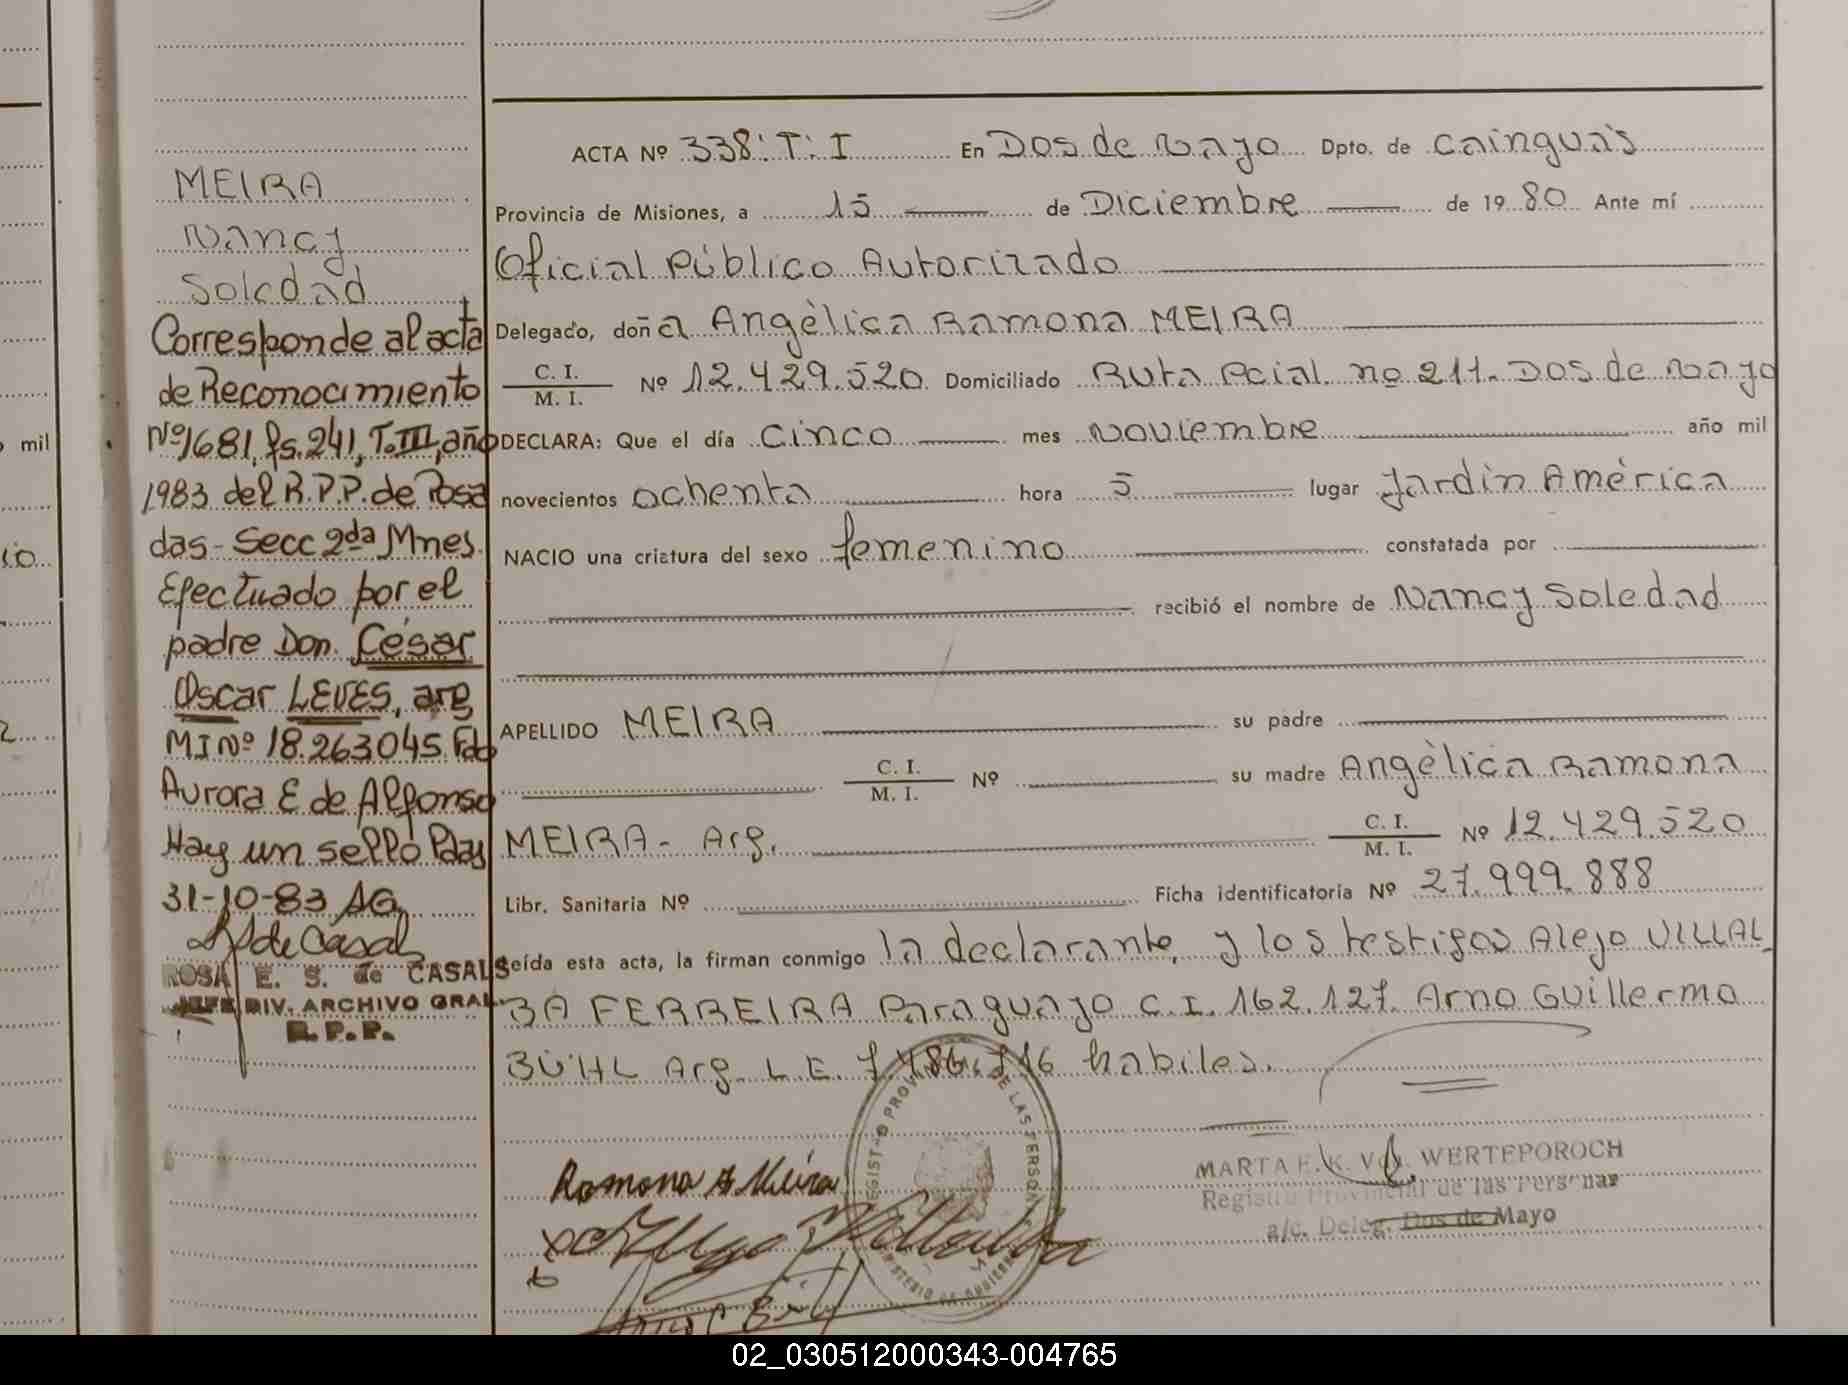 MEIRA
Nancy
Soledad
Corresponde al acta
de Reconocimiento
Nº1681, fs.241, T.III, año
1983 del R.P.P. de Posa
das - Secc 2da Mnes.
Efectuado por el
padre Don. César
Oscar LEVES, arg
MI Nº 18.263045. Fdo
Aurora E de Alfonso
Hay un sello Pdas
31-10-83 AG.
ROSA E. S. de CASALS
JEFE DIV. ARCHIVO GRAL.
R. P. P.
ACTA Nº 338: T: I En Dos de Mayo Dpto. de Cainguás
Provincia de Misiones, a 15 de Diciembre de 19 80 Ante mí
Oficial Público Autorizado
Delegado, doña Angèlica Ramona MEIRA
C. I.
M. I. Nº 12.429.520 Domiciliado Ruta Pcial. nº 211. Dos de Mayo
DECLARA: Que el día cinco mes Noviembre año mil
novecientos ochenta hora 5 lugar Jardín América
NACIO una criatura del sexo femenino constatada por
recibió el nombre de Nancy Soledad
APELLIDO MEIRA su padre
C. I.
M. I. Nº su madre Angèlica Ramona
MEIRA - Arg. C. I.
M. I. Nº 12.429.520
Libr. Sanitaria Nº Ficha identificatoria Nº 27.999.888
Leída esta acta, la firman conmigo la declarante, y los testigos Alejo VILLAL_
BA FERREIRA Paraguayo C.I. 162.127. Arno Guillermo
BÜHL Arg. L.E. habiles.
Ramona A Meira
MARTA E. K. WERTEPOROCH
Registro Provincial de las Personas
a/c. Deleg. Dos de Mayo
mil
02_030512000343-004765